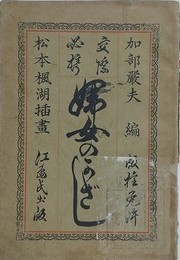 加部嚴夫 編
版権免許
交際
必携
婦女のかゞし
松本楓湖插畫
江島氏出版